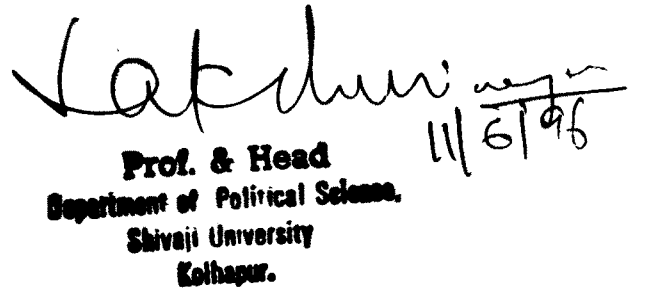 11/6/96
Prof. & Head
Department of Political Science,
Shivaji University
Kolhapur.